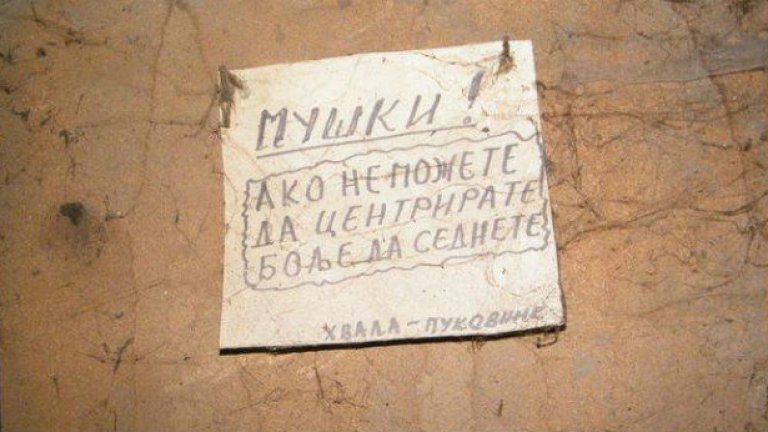 МУШКИ!
АКО НЕ МОЖЕТЕ
ДА ЦЕНТРИРАТЕ
БОЉЕ ДА СЕДНЕТЕ
ХВАЛА-ПУКОВИНЕ